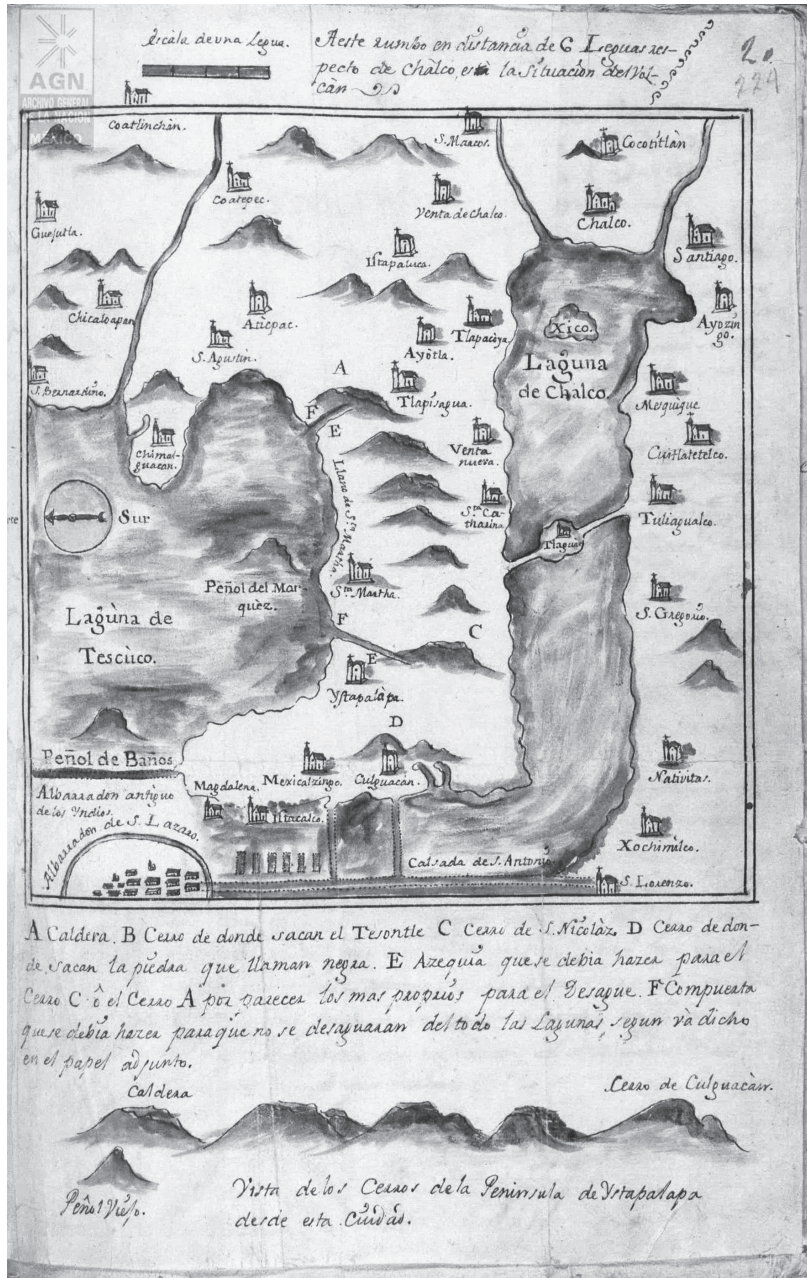 Escala de una Legua.
A este rumbo en distancia de 6 Leguas res-
pecto de Chalco, está la Situacion del Vol-
càn
2.
224
AGN
ARCHIVO GENERAL
DE LA NACIÓN
MÉXICO
Coatlinchàn.
S. Marcos.
Cocotitlàn
Coatepec.
Venta de Chalco.
Chalco.
Guejutla.
Santiago.
Istapaluca.
Chicaloapan
Aticpac.
Tlapacoya
Xico.
Ayozin
go.
S. Agustin.
Ayotla.
Laguna
de Chalco.
S. Bernardino.
A
Tlapisagua.
Mesquique
F
E
Chimal-
guacan.
Venta
nueva.
Cuitlatetelco.
Llano de Sta. Martha.
Sta. Ca-
tharina
Tuliagualco.
Sur
Tlaguac
Peñol del Mar-
quez.
Sta. Martha.
S. Gregorio.
Lagùna de
Tescùco.
F
C
E
Ystapalàpa.
D
Peñol de Baños
Mexicalzingo.
Culguacàn.
Nativitas.
Albarradon antiguo
de los Yndios.
Magdalena.
Istacalco.
Albarradon de S. Lazaro.
Xochimilco.
Calsada de S. Antonio
S. Lorenzo.
A Caldera. B Cerro de donde sacan el Tesontle C Cerro de S. Nicolàz, D Cerro de don-
de sacan la piedra que llaman negra. E Azequia que se debia hazer para el
Cerro C ô el Cerro A por parecer los mas proprios para el Desague. F Compuerta
que se debia hazer para que no se desaguaran del todo las Lagunas, segun và dicho
en el papel adjunto.
Caldera
Cerro de Culguacàn.
Peñol Viejo.
Vista de los Cerros de la Peninsula de Ystapalapa
desde esta Ciudad.